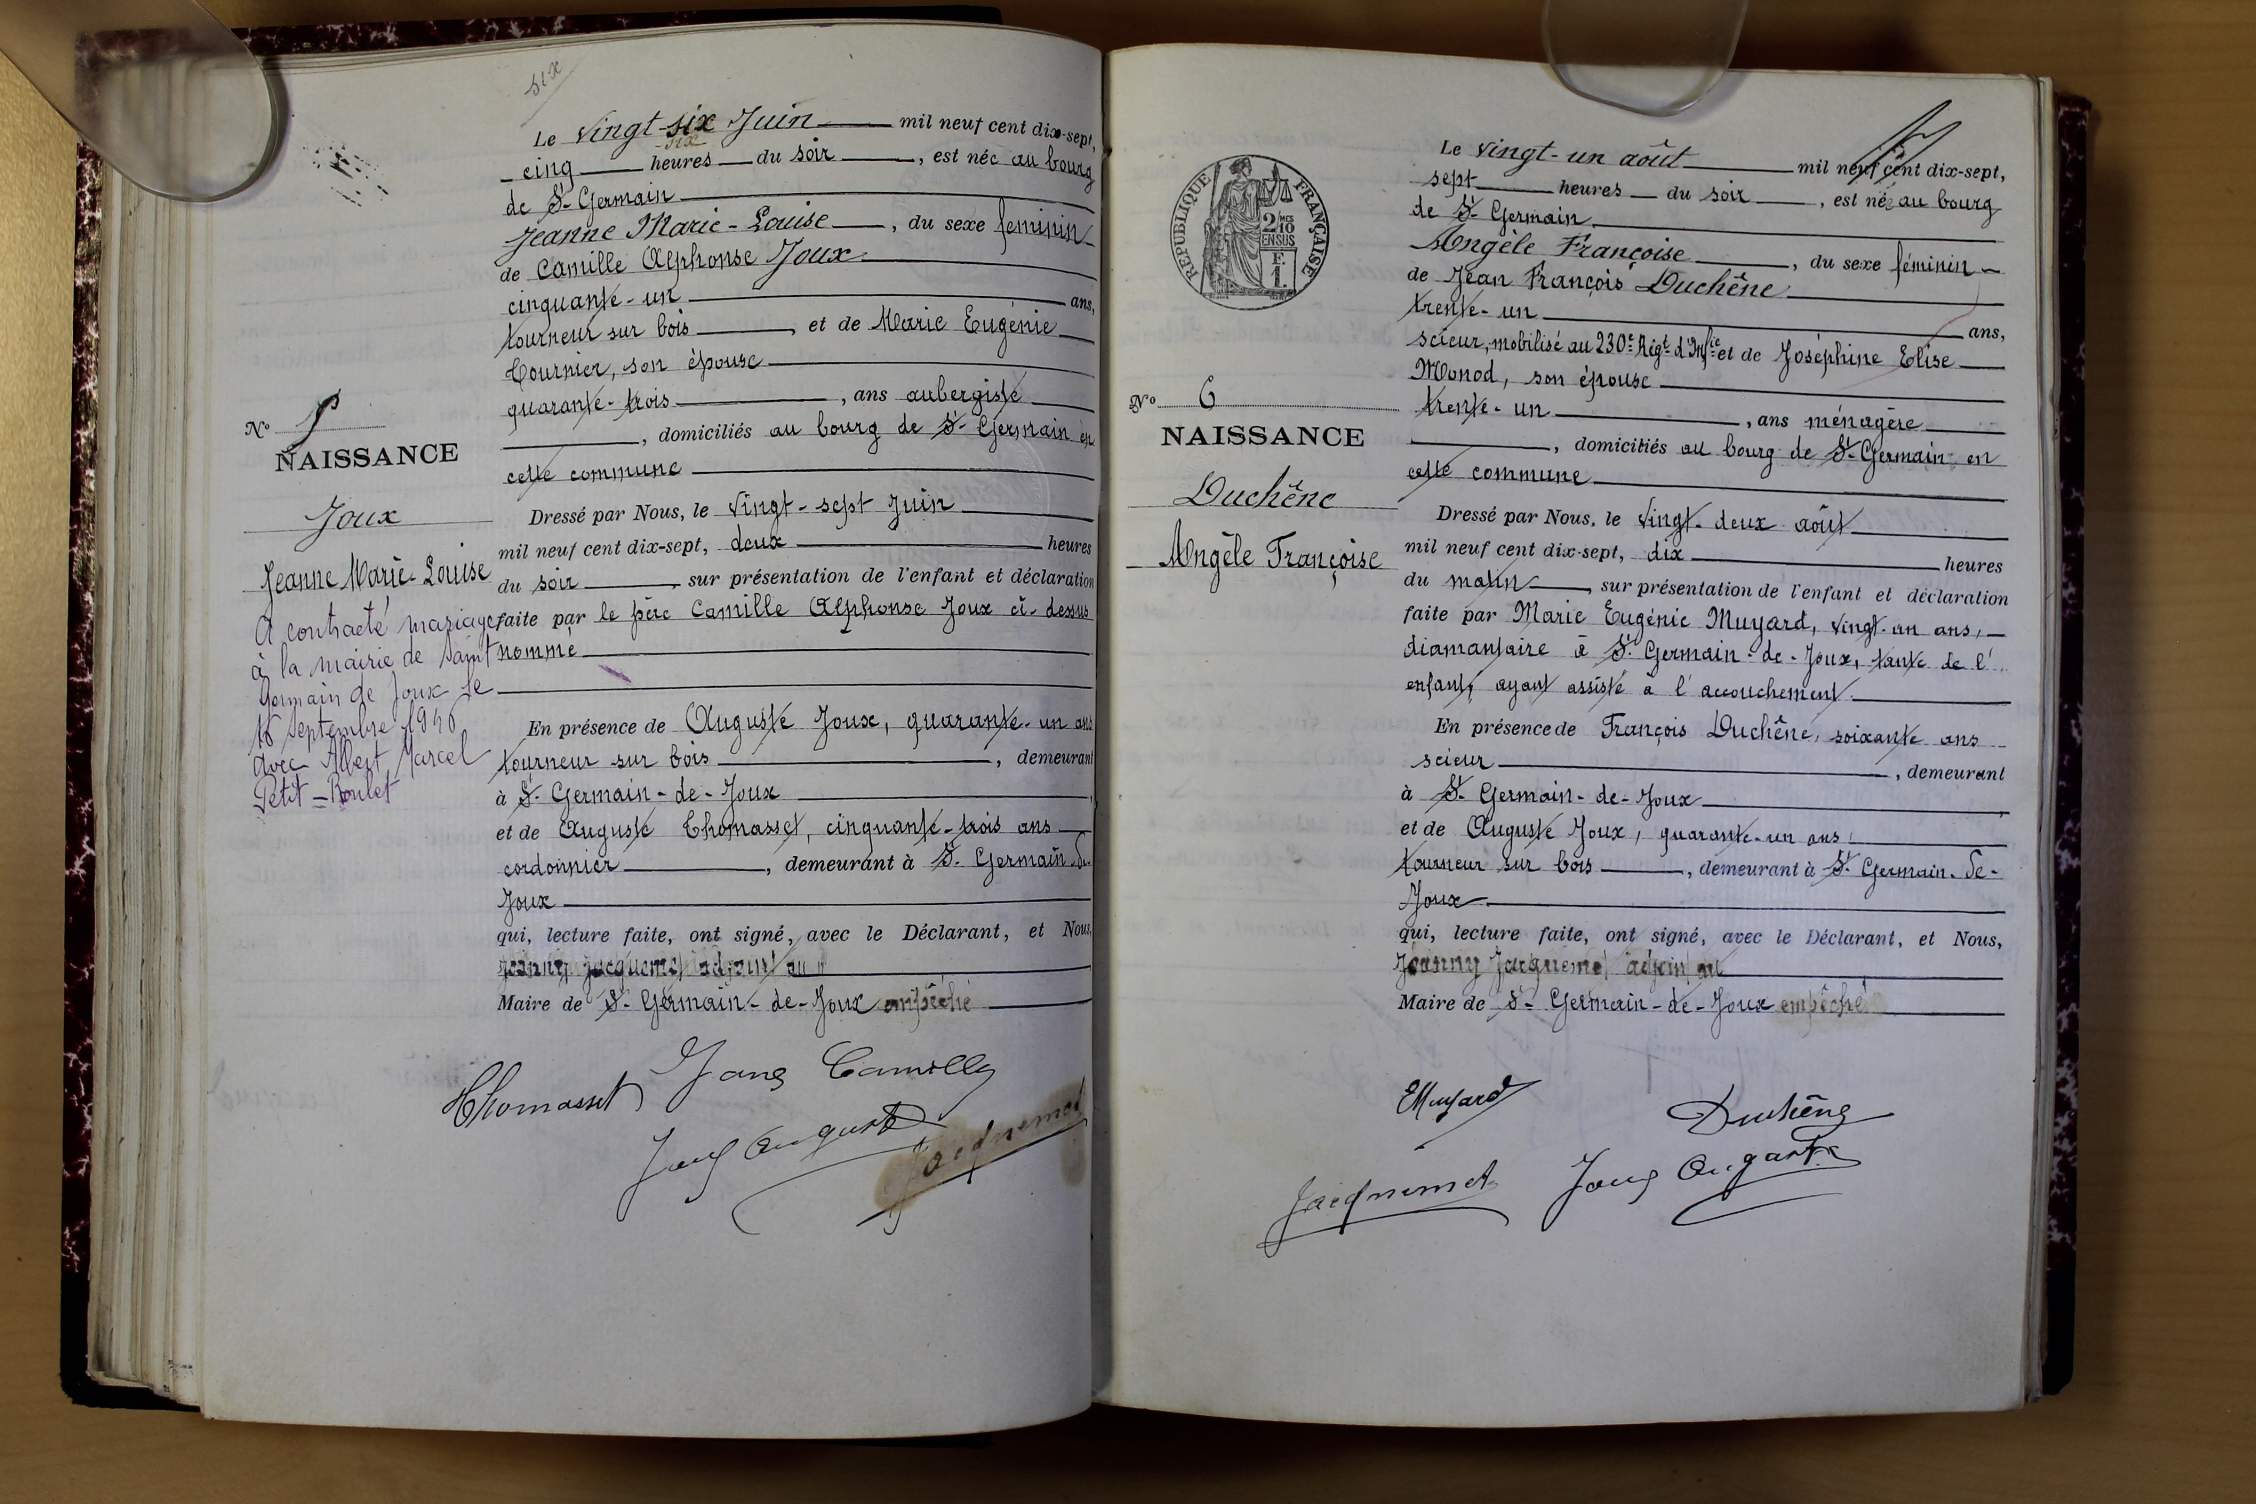 six
Le Vingt-six Juin mil neuf cent dix-sept,
six
cinq heures du soir, est née au bourg
de St Germain
Jeanne Marie-Louise, du sexe féminin
de Camille Alphonse Joux
cinquante-un ans,
tourneur sur bois, et de Marie Eugénie
Tournier, son épouse
quarante-trois, ans aubergiste
, domiciliés au bourg de St Germain en
cette commune
Dressé par Nous, le Vingt-sept Juin
mil neuf cent dix-sept, deux heures
du soir, sur présentation de l'enfant et déclaration
faite par le père Camille Alphonse Joux ci-dessus
nommé
En présence de Auguste Joux, quarante-un ans
tourneur sur bois, demeurant
à St Germain-de-Joux
et de Auguste Thomasset, cinquante-trois ans
cordonnier, demeurant à St Germain-de-
Joux
qui, lecture faite, ont signé, avec le Déclarant, et Nous,
Joanny Jacquemet adjoint au
Maire de St Germain-de-Joux empêché
Thomasset Joux Camille
Joux Auguste Jacquemet
No 5
NAISSANCE
Joux
Jeanne Marie-Louise
A contracté mariage
à la mairie de Saint
Germain de Joux le
16 septembre 1946
avec Albert Marcel
Petit-Roulet
RÉPUBLIQUE FRANÇAISE
2/10 MES
EN SUS
F.
1.
No 6
NAISSANCE
Duchêne
Angèle Françoise
Le Vingt-un août mil neuf cent dix-sept,
sept heures du soir, est née au bourg
de St Germain
Angèle Françoise, du sexe féminin
de Jean François Duchêne
trente-un ans,
scieur, mobilisé au 230e Régt d'Infie et de Joséphine Elise
Monod, son épouse
trente-un, ans ménagère
, domiciliés au bourg de St Germain en
cette commune
Dressé par Nous, le Vingt-deux août
mil neuf cent dix-sept, dix heures
du matin, sur présentation de l'enfant et déclaration
faite par Marie Eugénie Muyard, vingt-un ans,
diamantaire à St Germain-de-Joux, tante de l'
enfant, ayant assisté à l'accouchement
En présence de François Duchêne, soixante ans
scieur, demeurant
à St Germain-de-Joux
et de Auguste Joux, quarante-un ans,
tourneur sur bois, demeurant à St Germain-de-
Joux
qui, lecture faite, ont signé, avec le Déclarant, et Nous,
Joanny Jacquemet adjoint au
Maire de St Germain-de-Joux empêché
EMuyard Duchêne
Jacquemet Joux Auguste